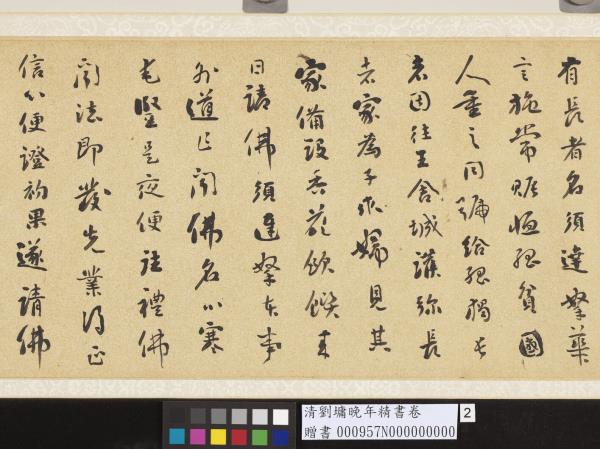 有長者名須達拏華
言施常賑恤孤貧國
人重之同號給孤獨長
者因往王舍城護彌長
者家為子求婦見其
家備設香花飲饌來
日請佛須達拏在事
外道乍聞佛名心寒
毛豎是夜便往禮佛
聞法即發先業得正
信心便證初果遂請佛
清劉墉晚年精書卷
贈書 000957N000000000
2